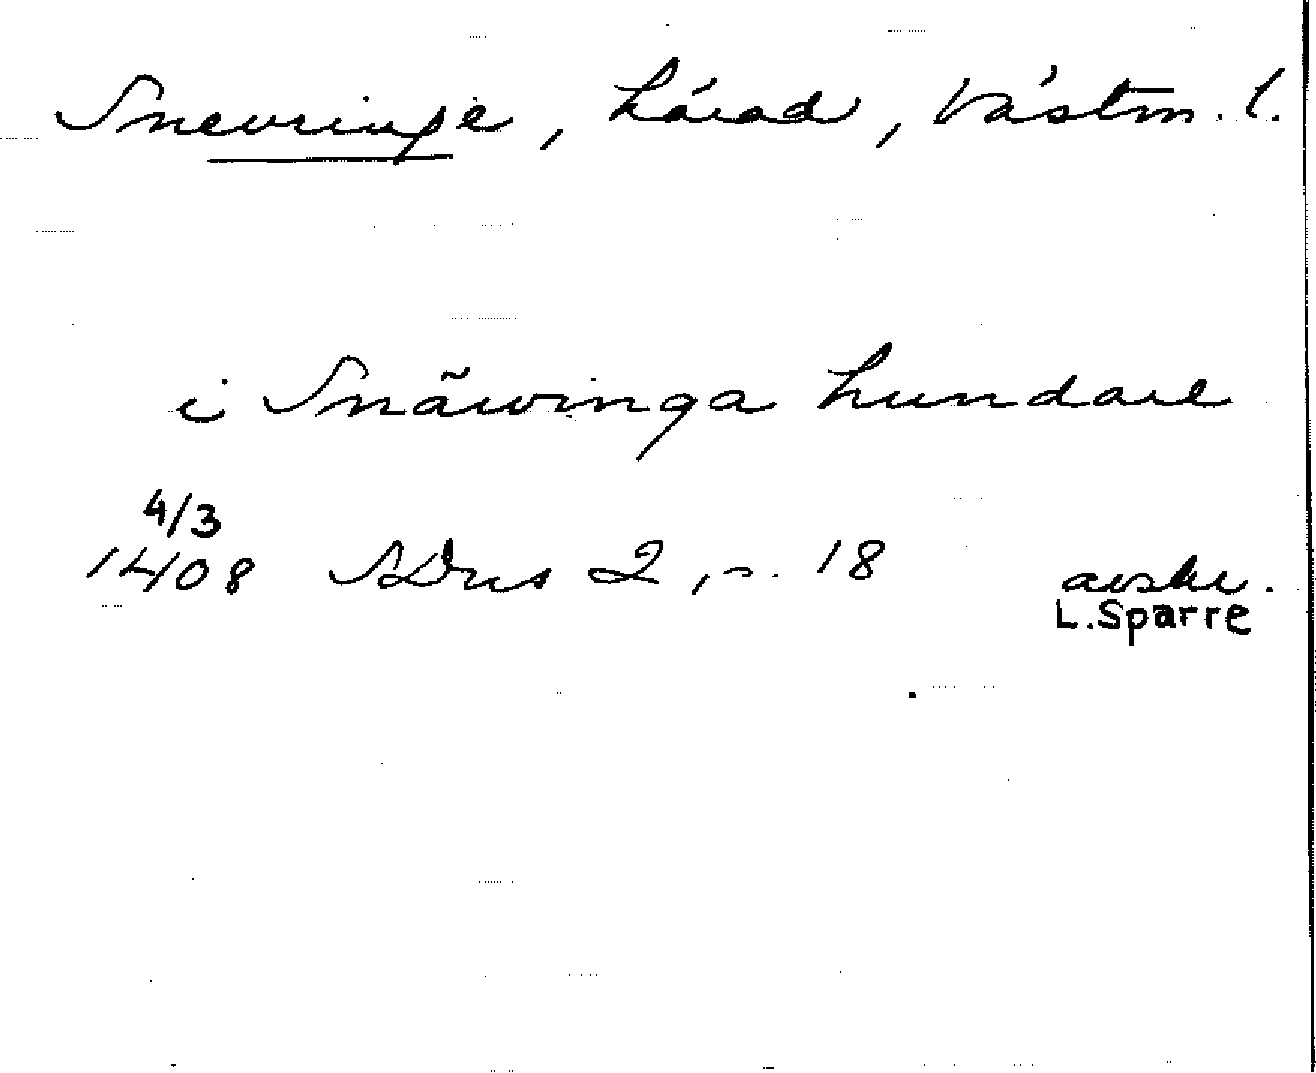 Snevringe, härad, Västm. l.
i Snäwinga hundare
4/3
1408 SDns 2, s. 18 avskr.
L. Sparre